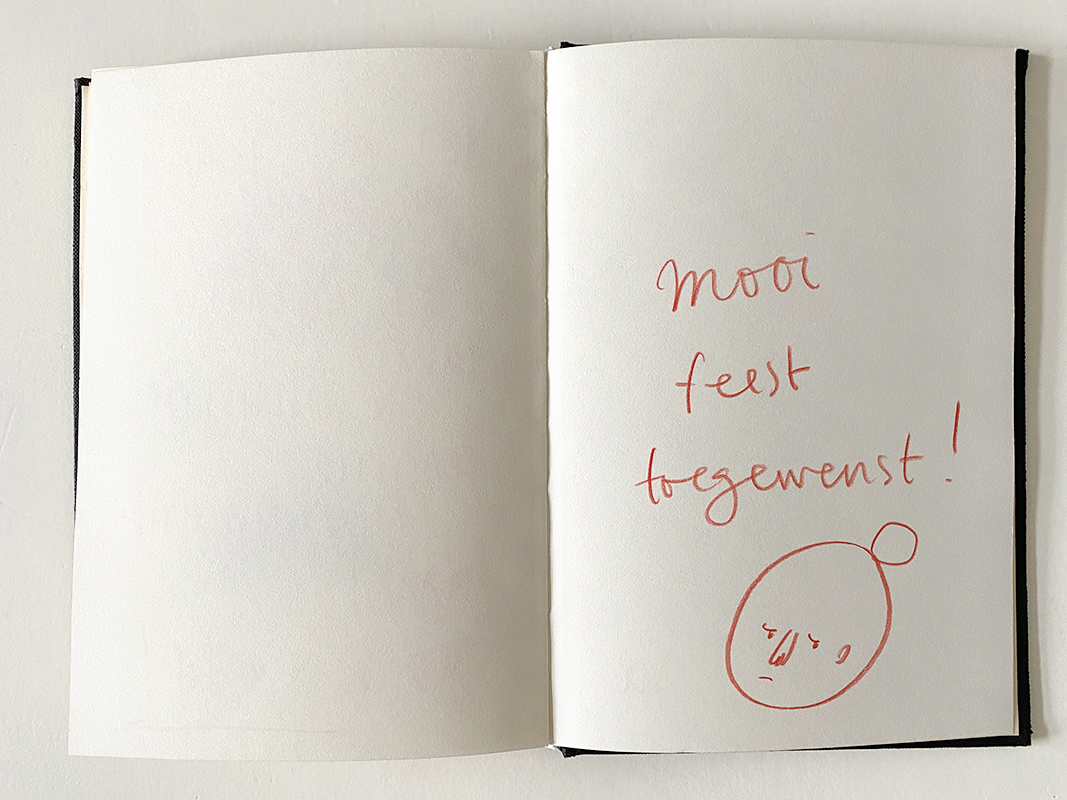 mooi
feest
toegewenst!